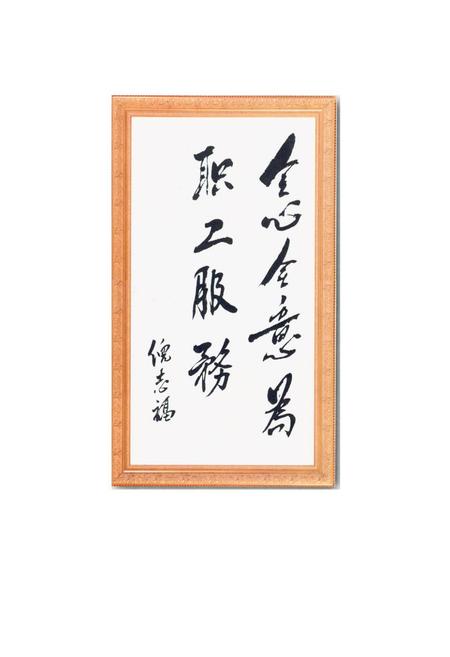 全心全意為
职工服務
倪志福